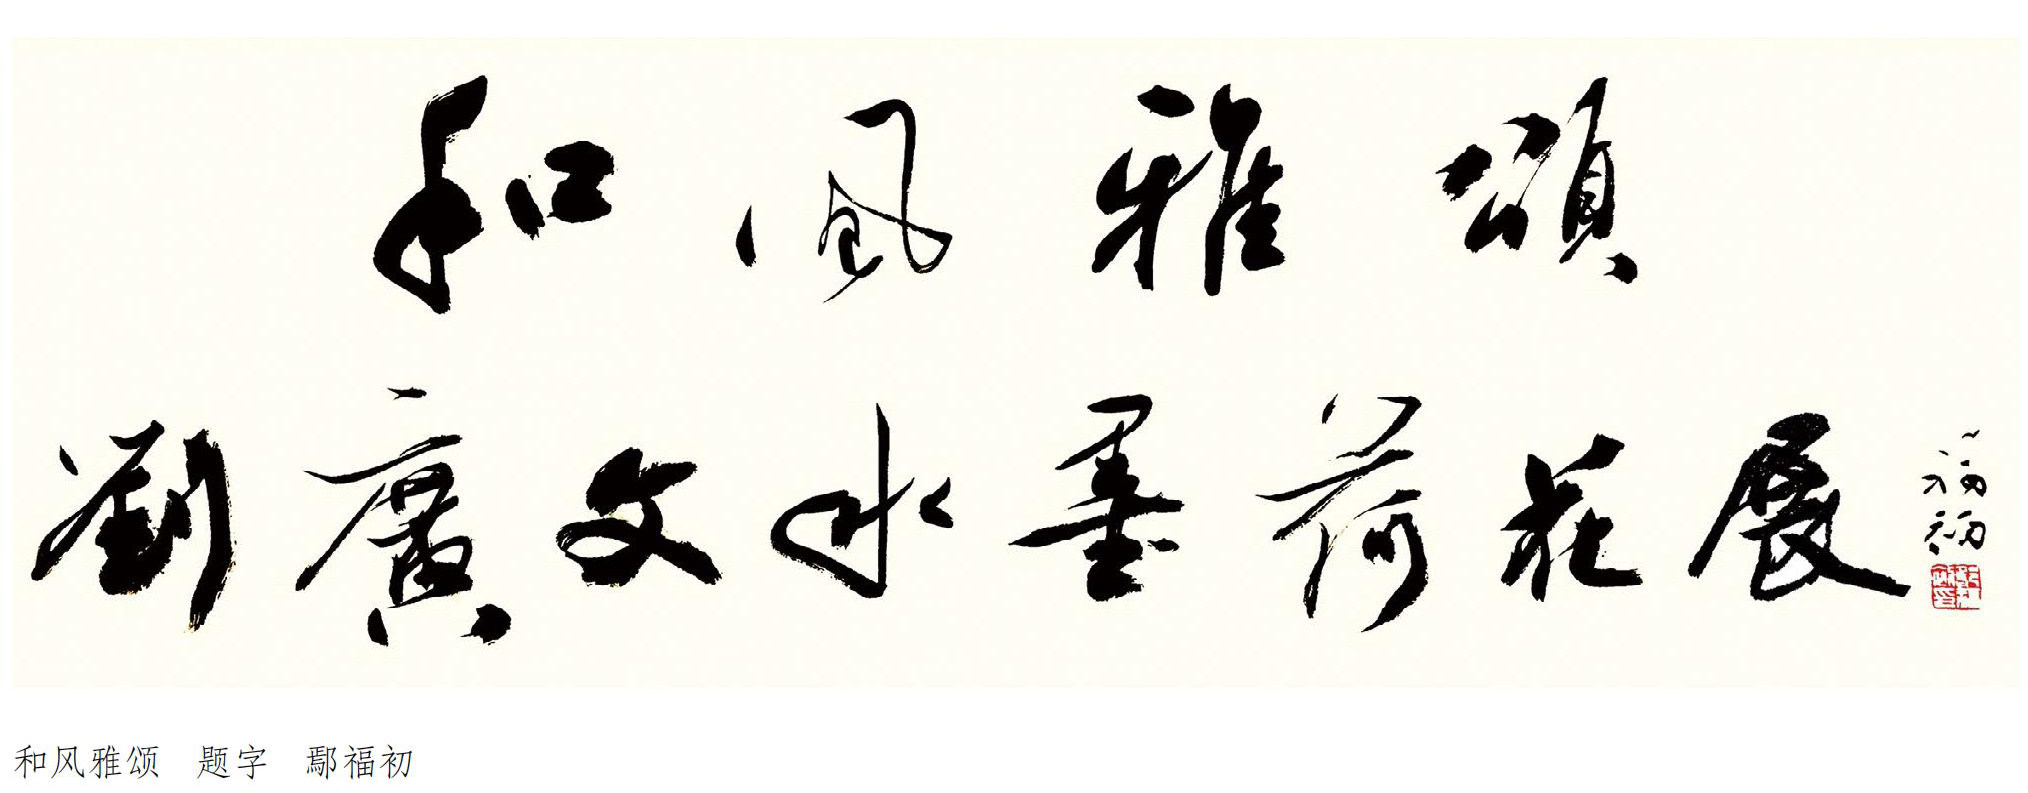 和風雅頌
劉廣文水墨荷花展
福初
和风雅颂 题字 鄢福初